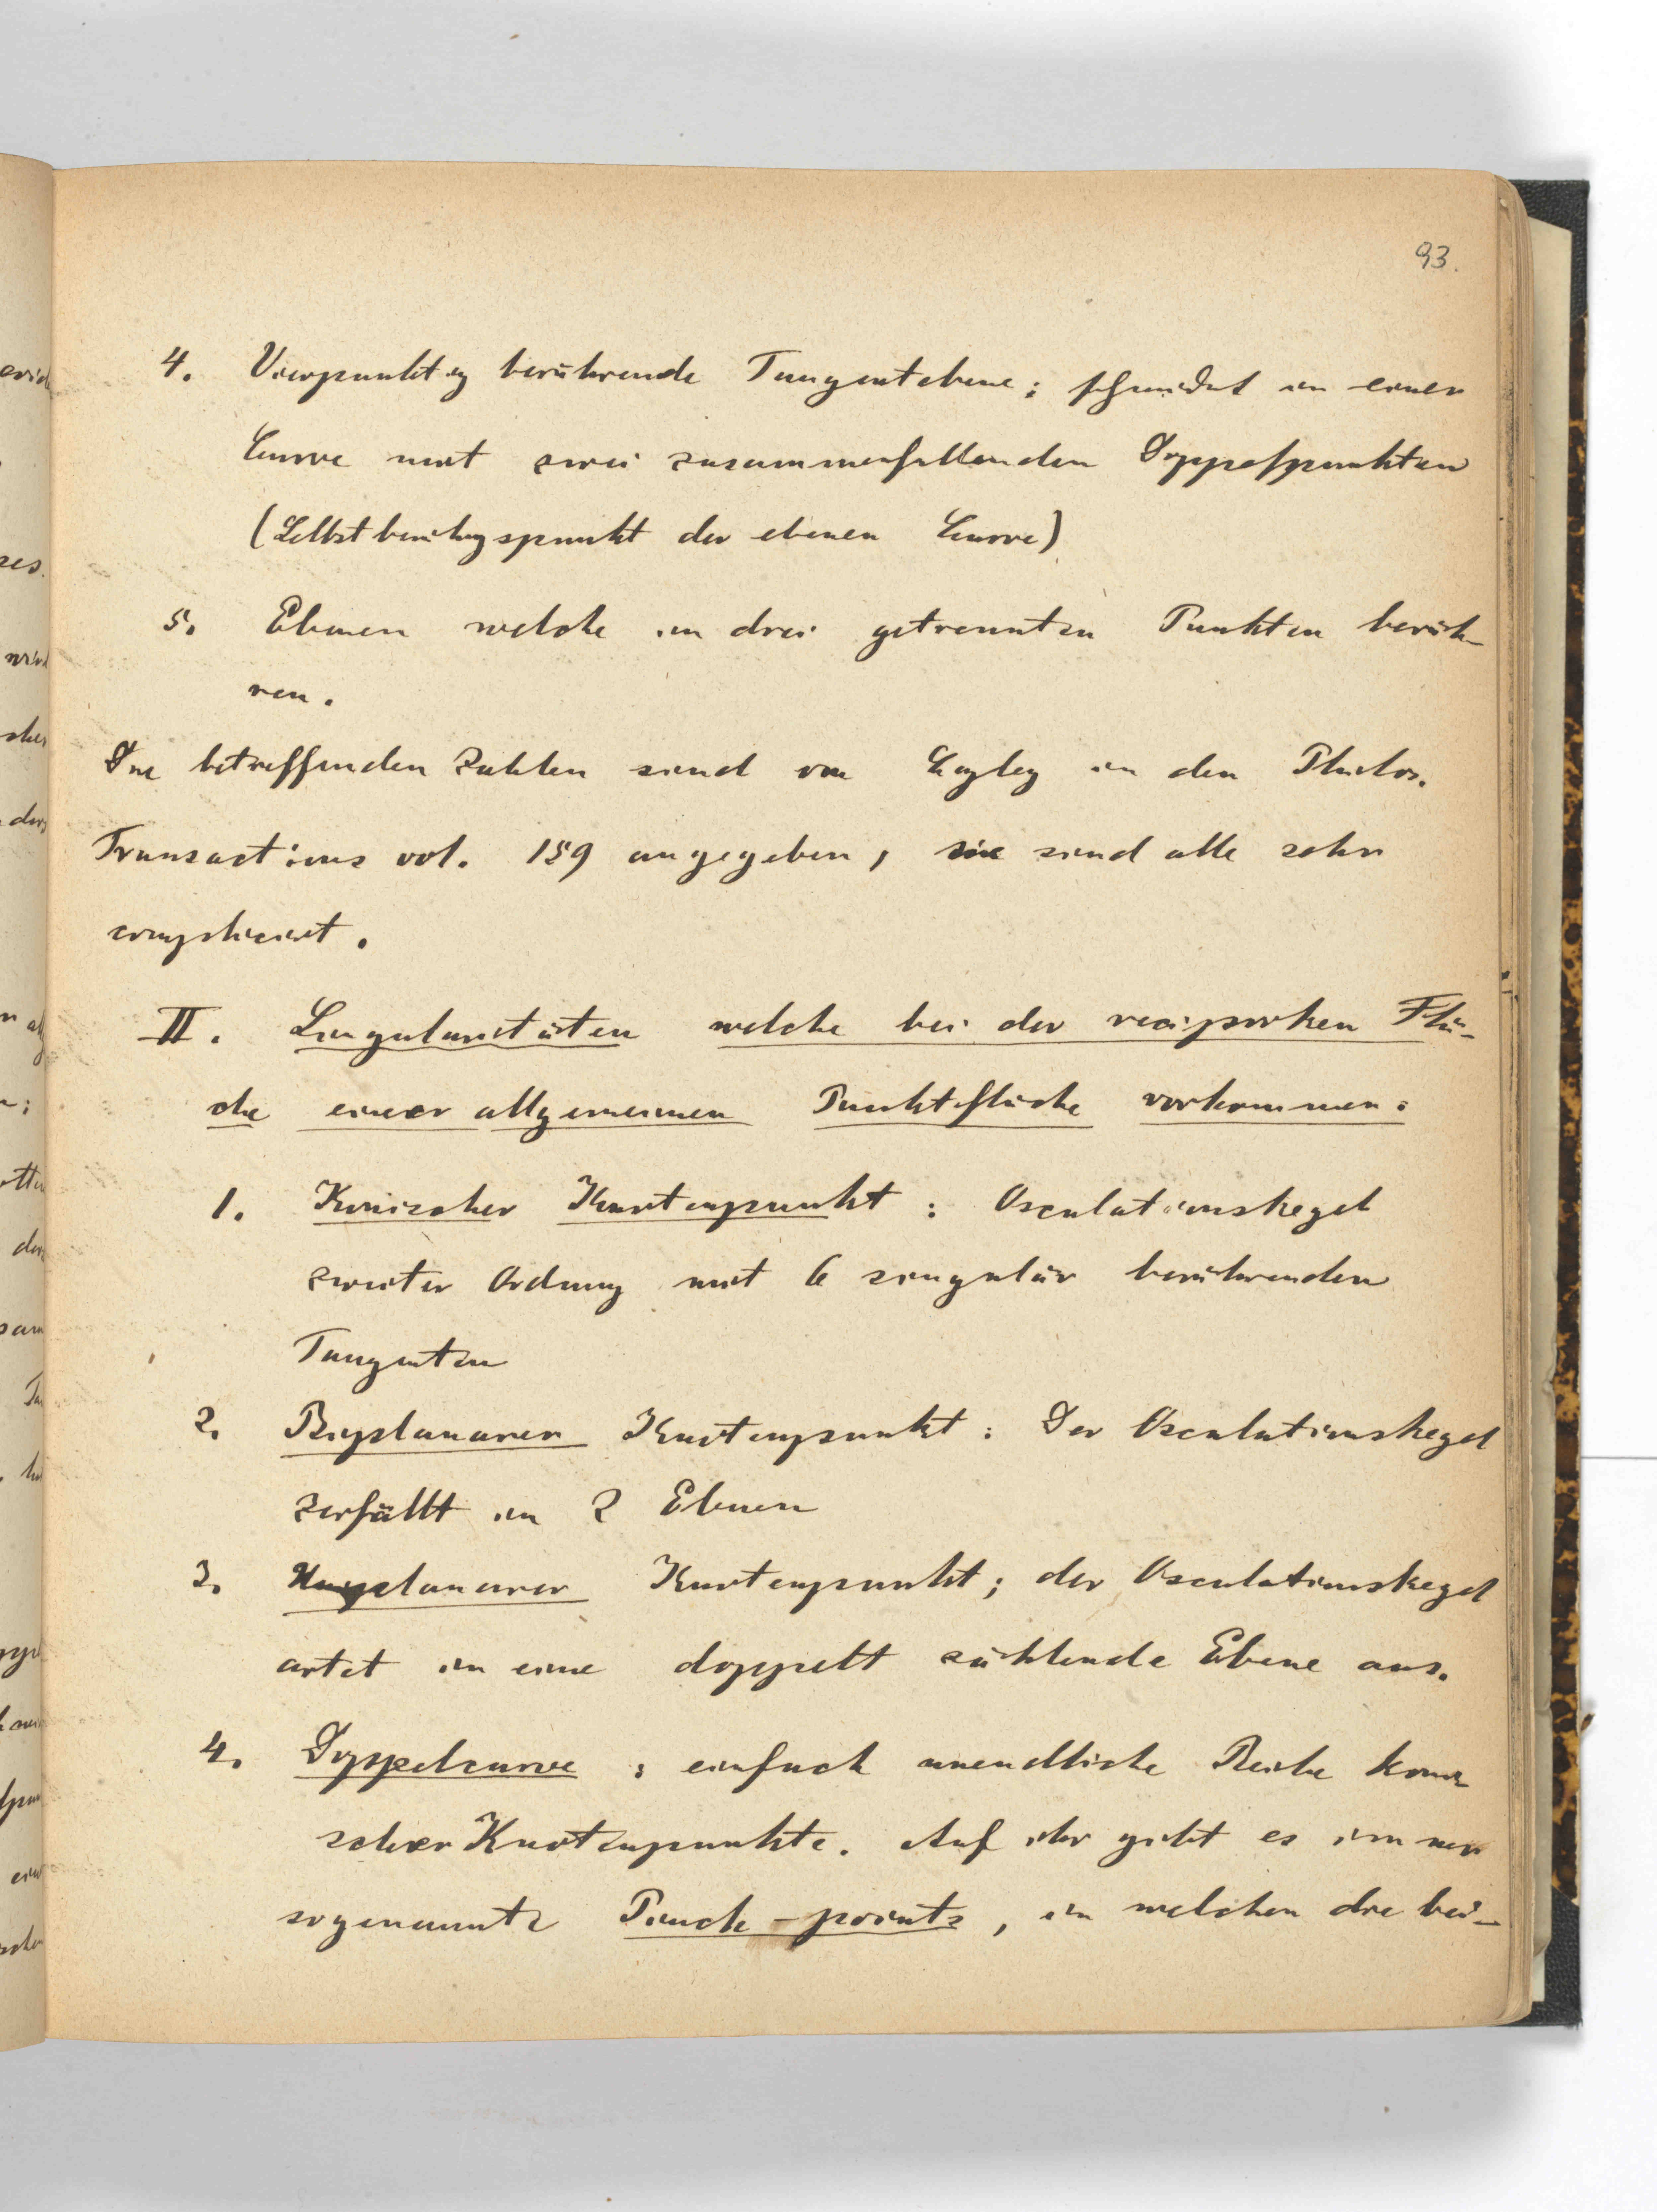 93.
4. Vierpunktig berührende Tangentebene; schneidet in einer
Curve mit zwei zusammenfallenden Doppelpunkten
(Selbstberührgspunkt der ebenen Curve)
5. Ebenen welche in drei getrennten Punkten berüh-
ren.
Die betreffenden Zahlen sind von Cayley in den Philos.
Transactions vol. 159 angegeben, sie sind alle sehr
compliciert.
II. Singularitäten welche bei der reciproken Flä-
che einer allgemeinen Punktfläche vorkommen:
1. Konischer Knotenpunkt: Osculationskegel
zweiter Ordnung mit 6 singulär berührenden
Tangenten
2. Biplanarer Knotenpunkt: Der Osculationskegel
zerfällt in 2 Ebenen
3. Uniplanarer Knotenpunkt; der Osculationskegel
artet in eine doppelt zählende Ebene aus.
4. Doppelcurve; einfach unendliche Reihe koni-
scher Knotenpunkte. Auf ihr gibt es immer
sogenannte Pinch-points, in welchen die bei-